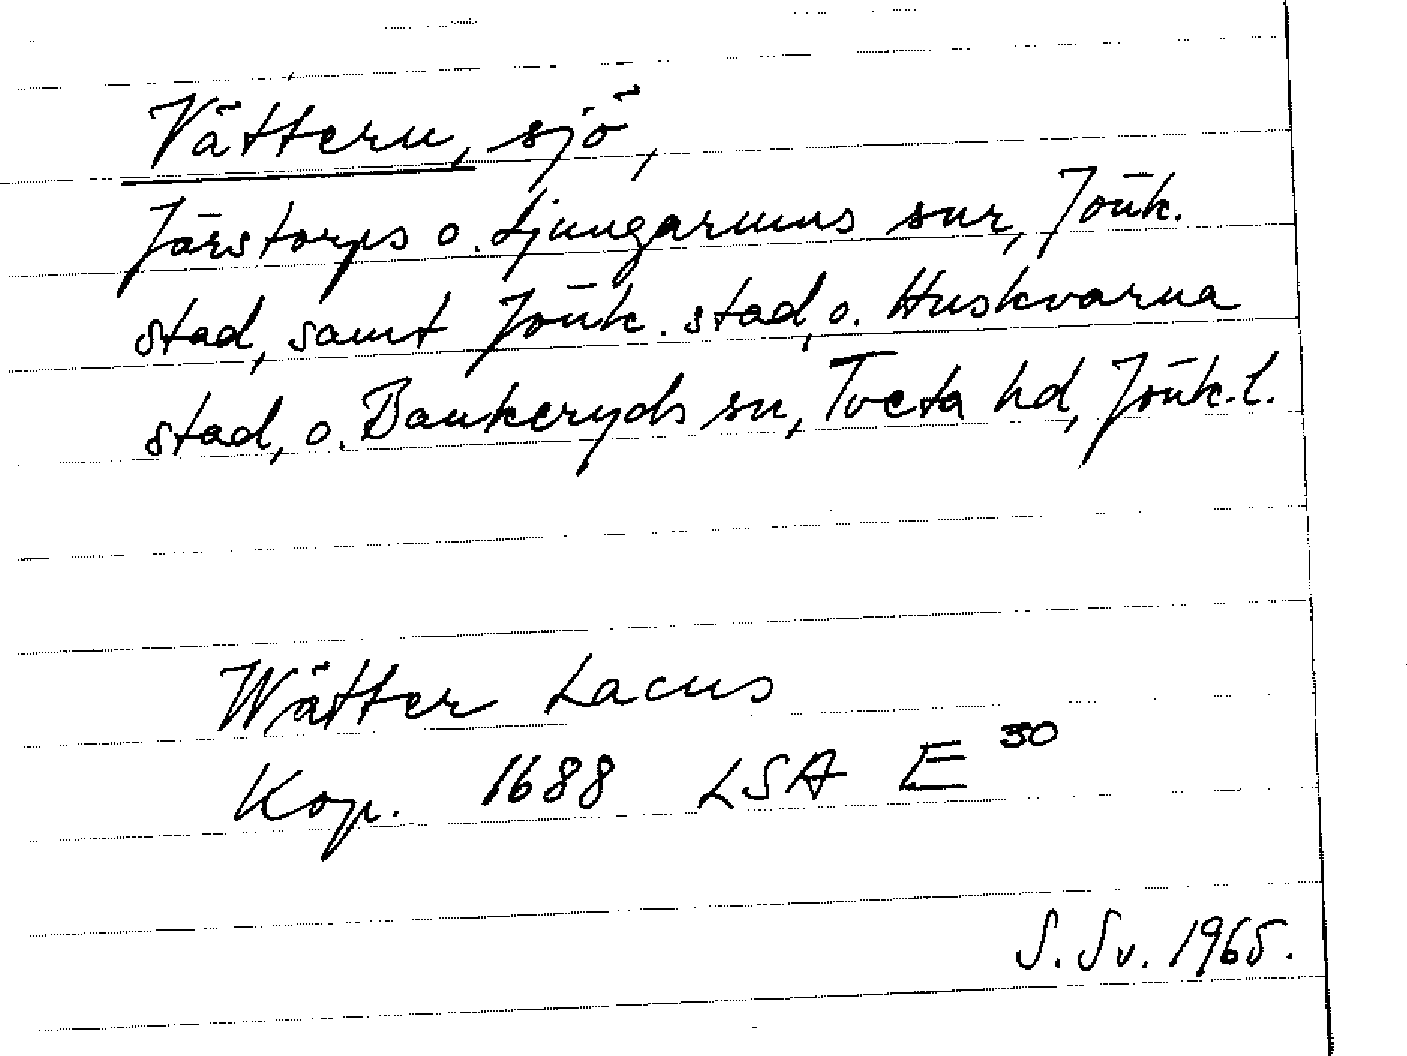 Vättern, sjö,
Järstorps o. Ljungarums snr, Jönk.
stad, samt Jönk. stad, o. Huskvarna
stad, o. Bankeryds sn, Tveta hd, Jönk. l.
Wätter Lacus
Kop. 1688 LSA E 30
S. Sv. 1965.